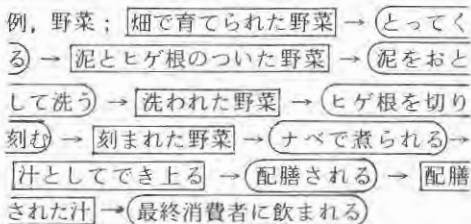 例，野菜；畑で育てられた野菜→とってく
る→泥とヒゲ根のついた野菜→泥をおと
して洗う→洗われた野菜→ヒゲ根を切り
刻む→刻まれた野菜→ナベで煮られる→
汁としてでき上る→配膳される→配膳
された汁→最終消費者に飲まれる